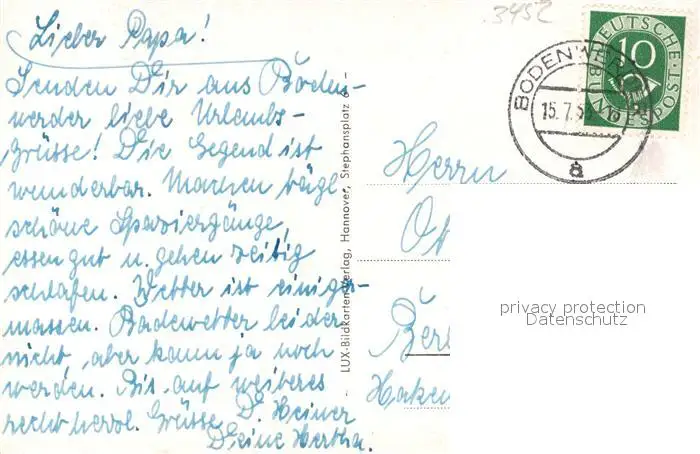 3452
Lieber Papa!
Senden Dir aus Boden-
werder liebe Urlaubs-
grüsse! Die Gegend ist
wunderbar. Machen tägl
schöne Spaziergänge,
essen gut u. gehen zeitig
schlafen. Wetter ist einiger-
massen. Badewetter leider
nicht, aber kann ja noch
werden. Bis auf weiteres
recht herzl. Grüsse D. Heiner
Deine Hertha.
LUX-Bildkarten-Verlag, Hannover, Stephansplatz 6
DEUTSCHE BUNDESPOST
10
BODENWERDER
15.7.53
a
Herrn
Ot
Berl
Haken
privacy protection
Datenschutz